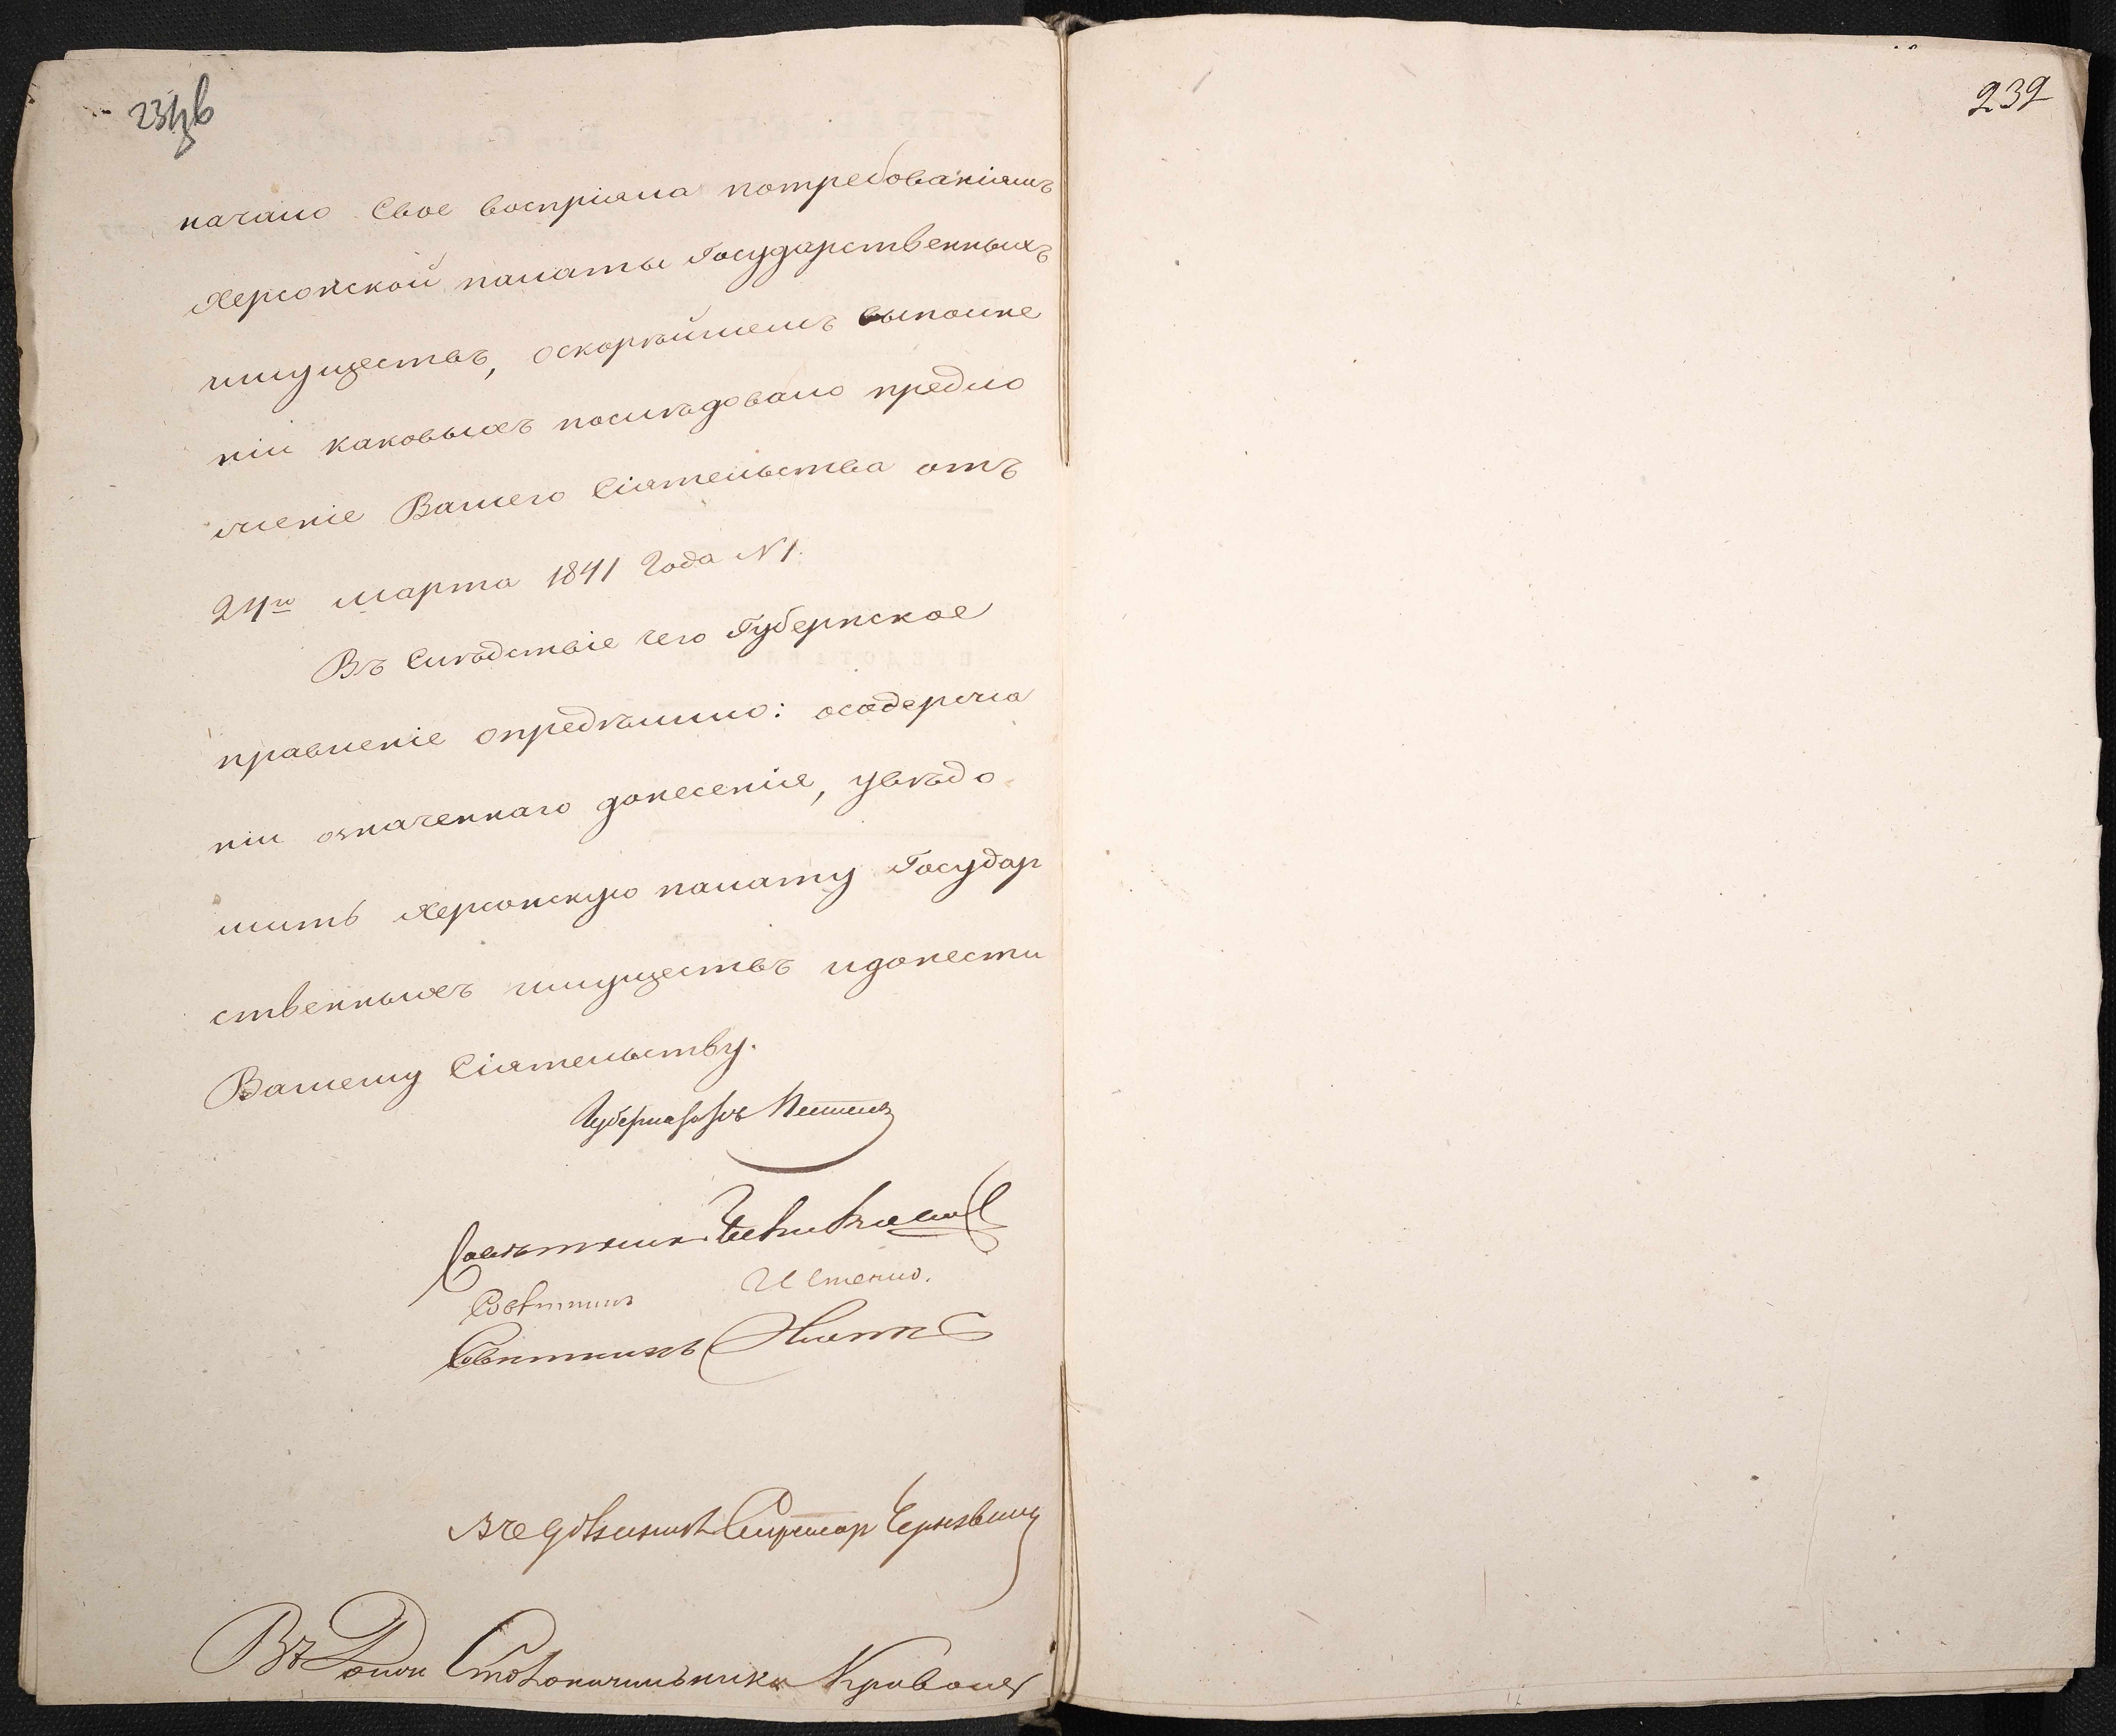 начало Свое воспріяла потребованіямъ
Херсонской палаты Государственныхъ
имуществъ, оскорѣйшемъ выполне
ніи каковыхъ послѣдовало предло
женіе Вашего Сіятельства отъ
24го марта 1841 Года №1.
Въ Слѣдствіе чего Губернское
правленіе опредѣлило: осодержа
ніи означеннаго донесенія, увѣдо
мить Херсонскую палату Государ
ственныхъ имуществъ идонести
Вашему Сіятельству.
Губернаторъ
Совѣтникъ
Совѣтникъ
Совѣтникъ
Секретарь
Столоначальника
232